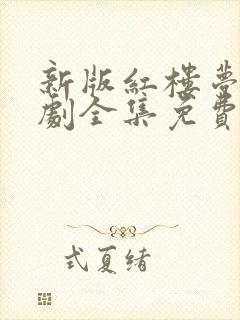 新版紅樓夢
劇全集免費
式夏緒